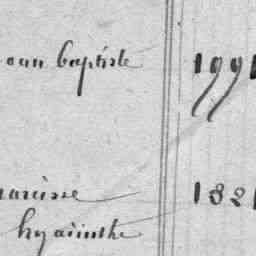 oan baptiste 1791
narcisse 1821
hyacinthe